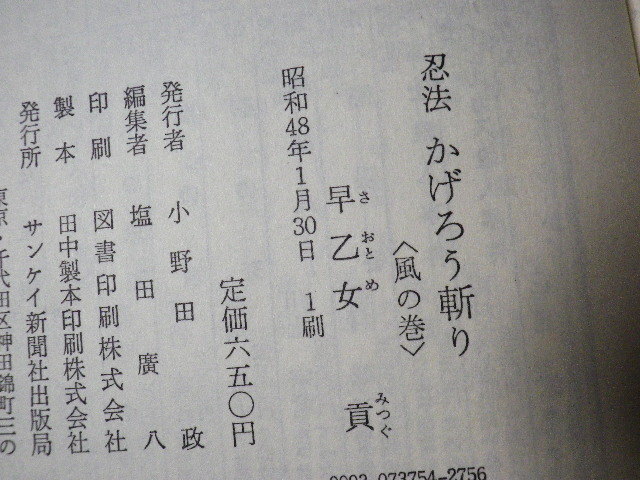 忍法 かげろう斬り
〈風の巻〉
早乙女 貢
さ おとめ みつぐ
昭和48年1月30日 1刷
定価六五〇円
発行者 小野田 政
編集者 塩田廣八
印刷 図書印刷株式会社
製本 田中製本印刷株式会社
発行所 サンケイ新聞社出版局
東京・千代田区神田錦町三の
0093-073754-2756